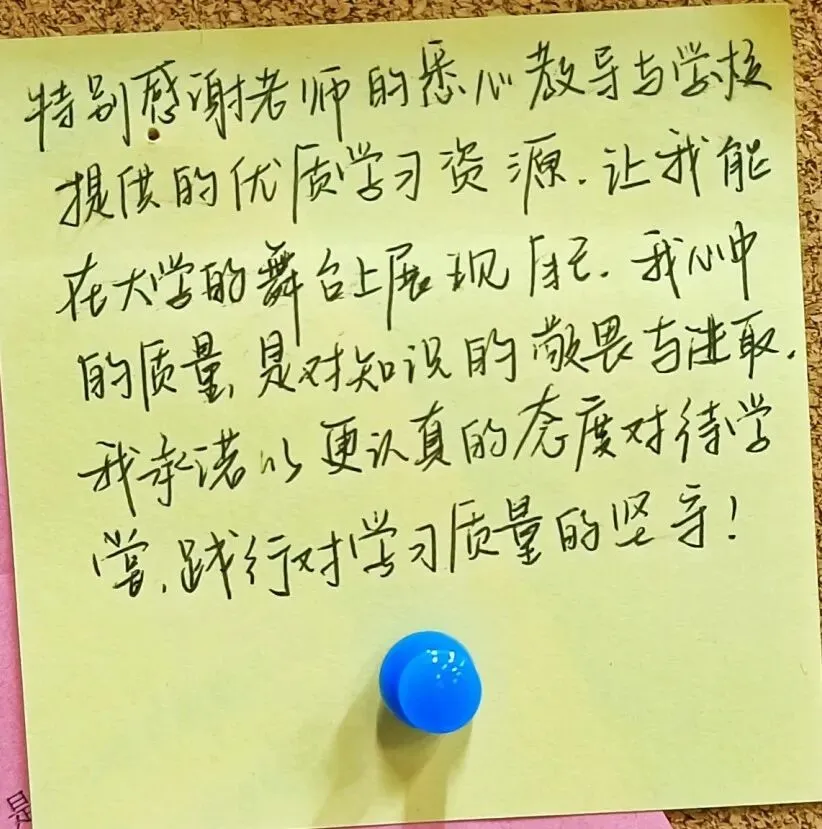 特别感谢老师的悉心教导与学校
提供的优质学习资源.让我能
在大学的舞台上展现自己.我心中
的质量,是对知识的敬畏与进取.
我承诺以更认真的态度对待学
营,践行对学习质量的坚守!
是